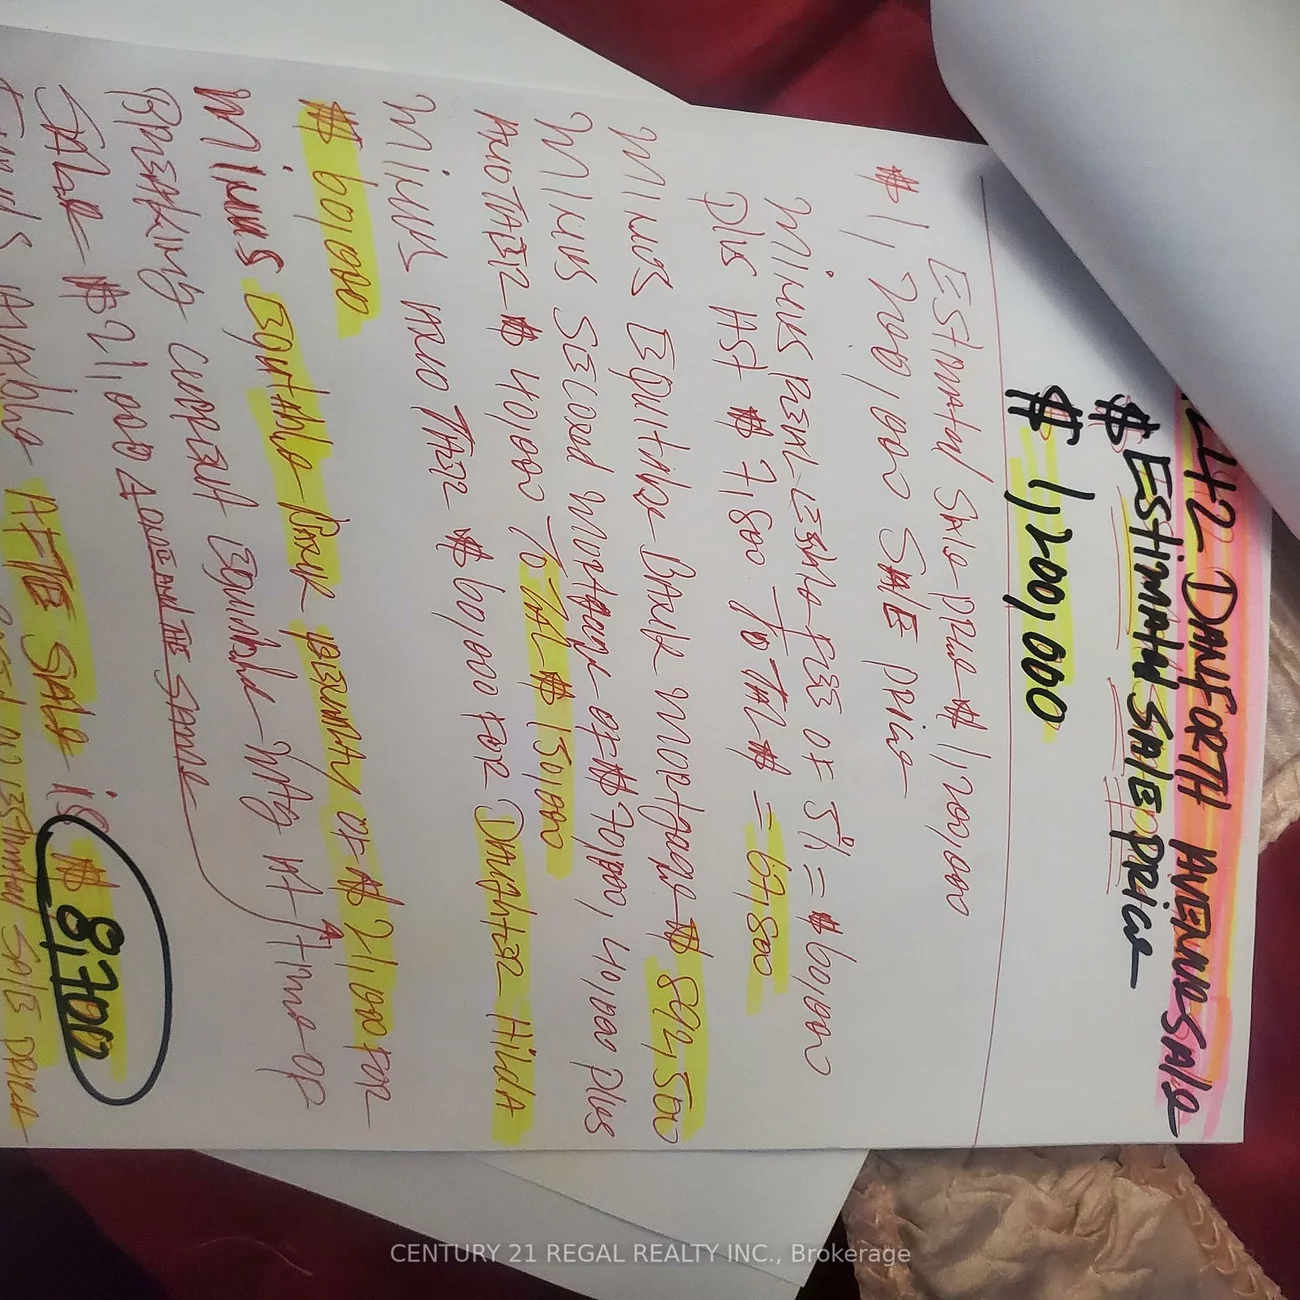 242 DANFORTH AVENUE SALE
$ ESTIMATED SALE PRICE
$ 1,200,000
ESTIMATED SALE PRICE $ 1,200,000
$ 1,200,000 SALE PRICE
MINUS REAL-ESTATE FEE OF 5% = $60,000
PLUS HST $ 7,800 TOTAL $ = 67,800
MINUS EQUITABLE BANK MORTGAGE $ 892,500
MINUS SECOND MORTGAGE OF $ 70,000, 40,000 PLUS
ANOTHER $ 40,000 TOTAL $ 150,000
MINUS ANOTHER $ 60,000 FOR DAUGHTER HILDA
$ 60,000
MINUS EQUITABLE BANK PENALTY OF $ 21,000 FOR
BREAKING CURRENT EQUITABLE MTG AT TIME OF
SALE $ 21,000 ABOVE AND THE SAME
FUNDS AVAILABLE AFTER SALE IS $ 8,700
ESTIMATED SALE PRICE
CENTURY 21 REGAL REALTY INC., Brokerage